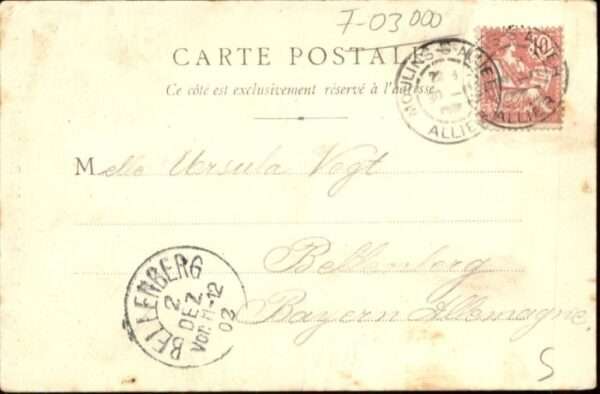 7-03 000
CARTE POSTALE
Ce côté est exclusivement réservé à l'adresse
MOULINS-S-ALLIER
ALLIER
10
Melle Ursula Vogt
Bellenberg
Bayern Allemagne.
BELLENBERG
2
DEZ
VORM-12
02
S